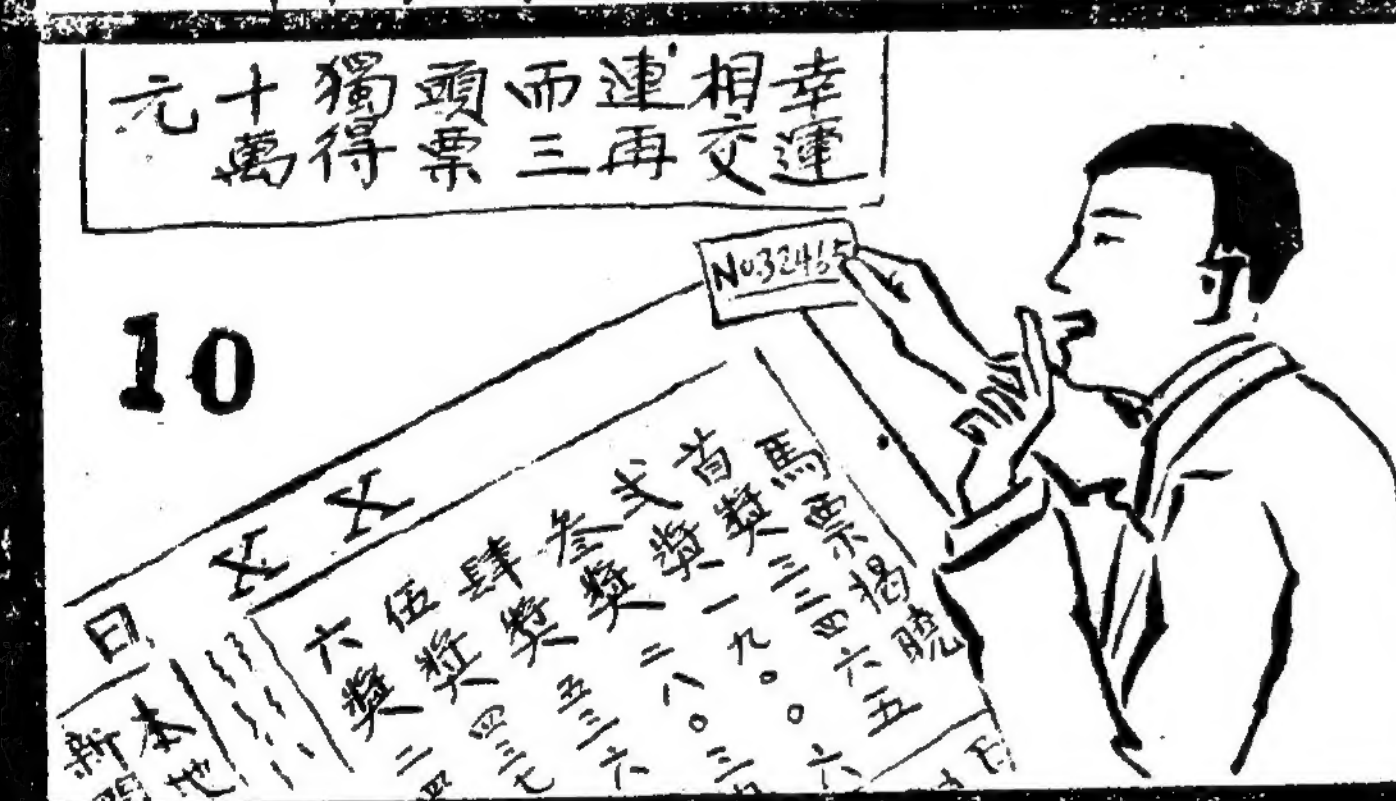 幸運
相交
連再
而三
頭票
獨得
十萬
元
No.32465
10
馬票揭曉
首獎三三四六五
弍獎一九〇〇六
叁獎二八〇三
肆獎五三六
伍獎四三七
六獎二四
X X 日
本地
新聞